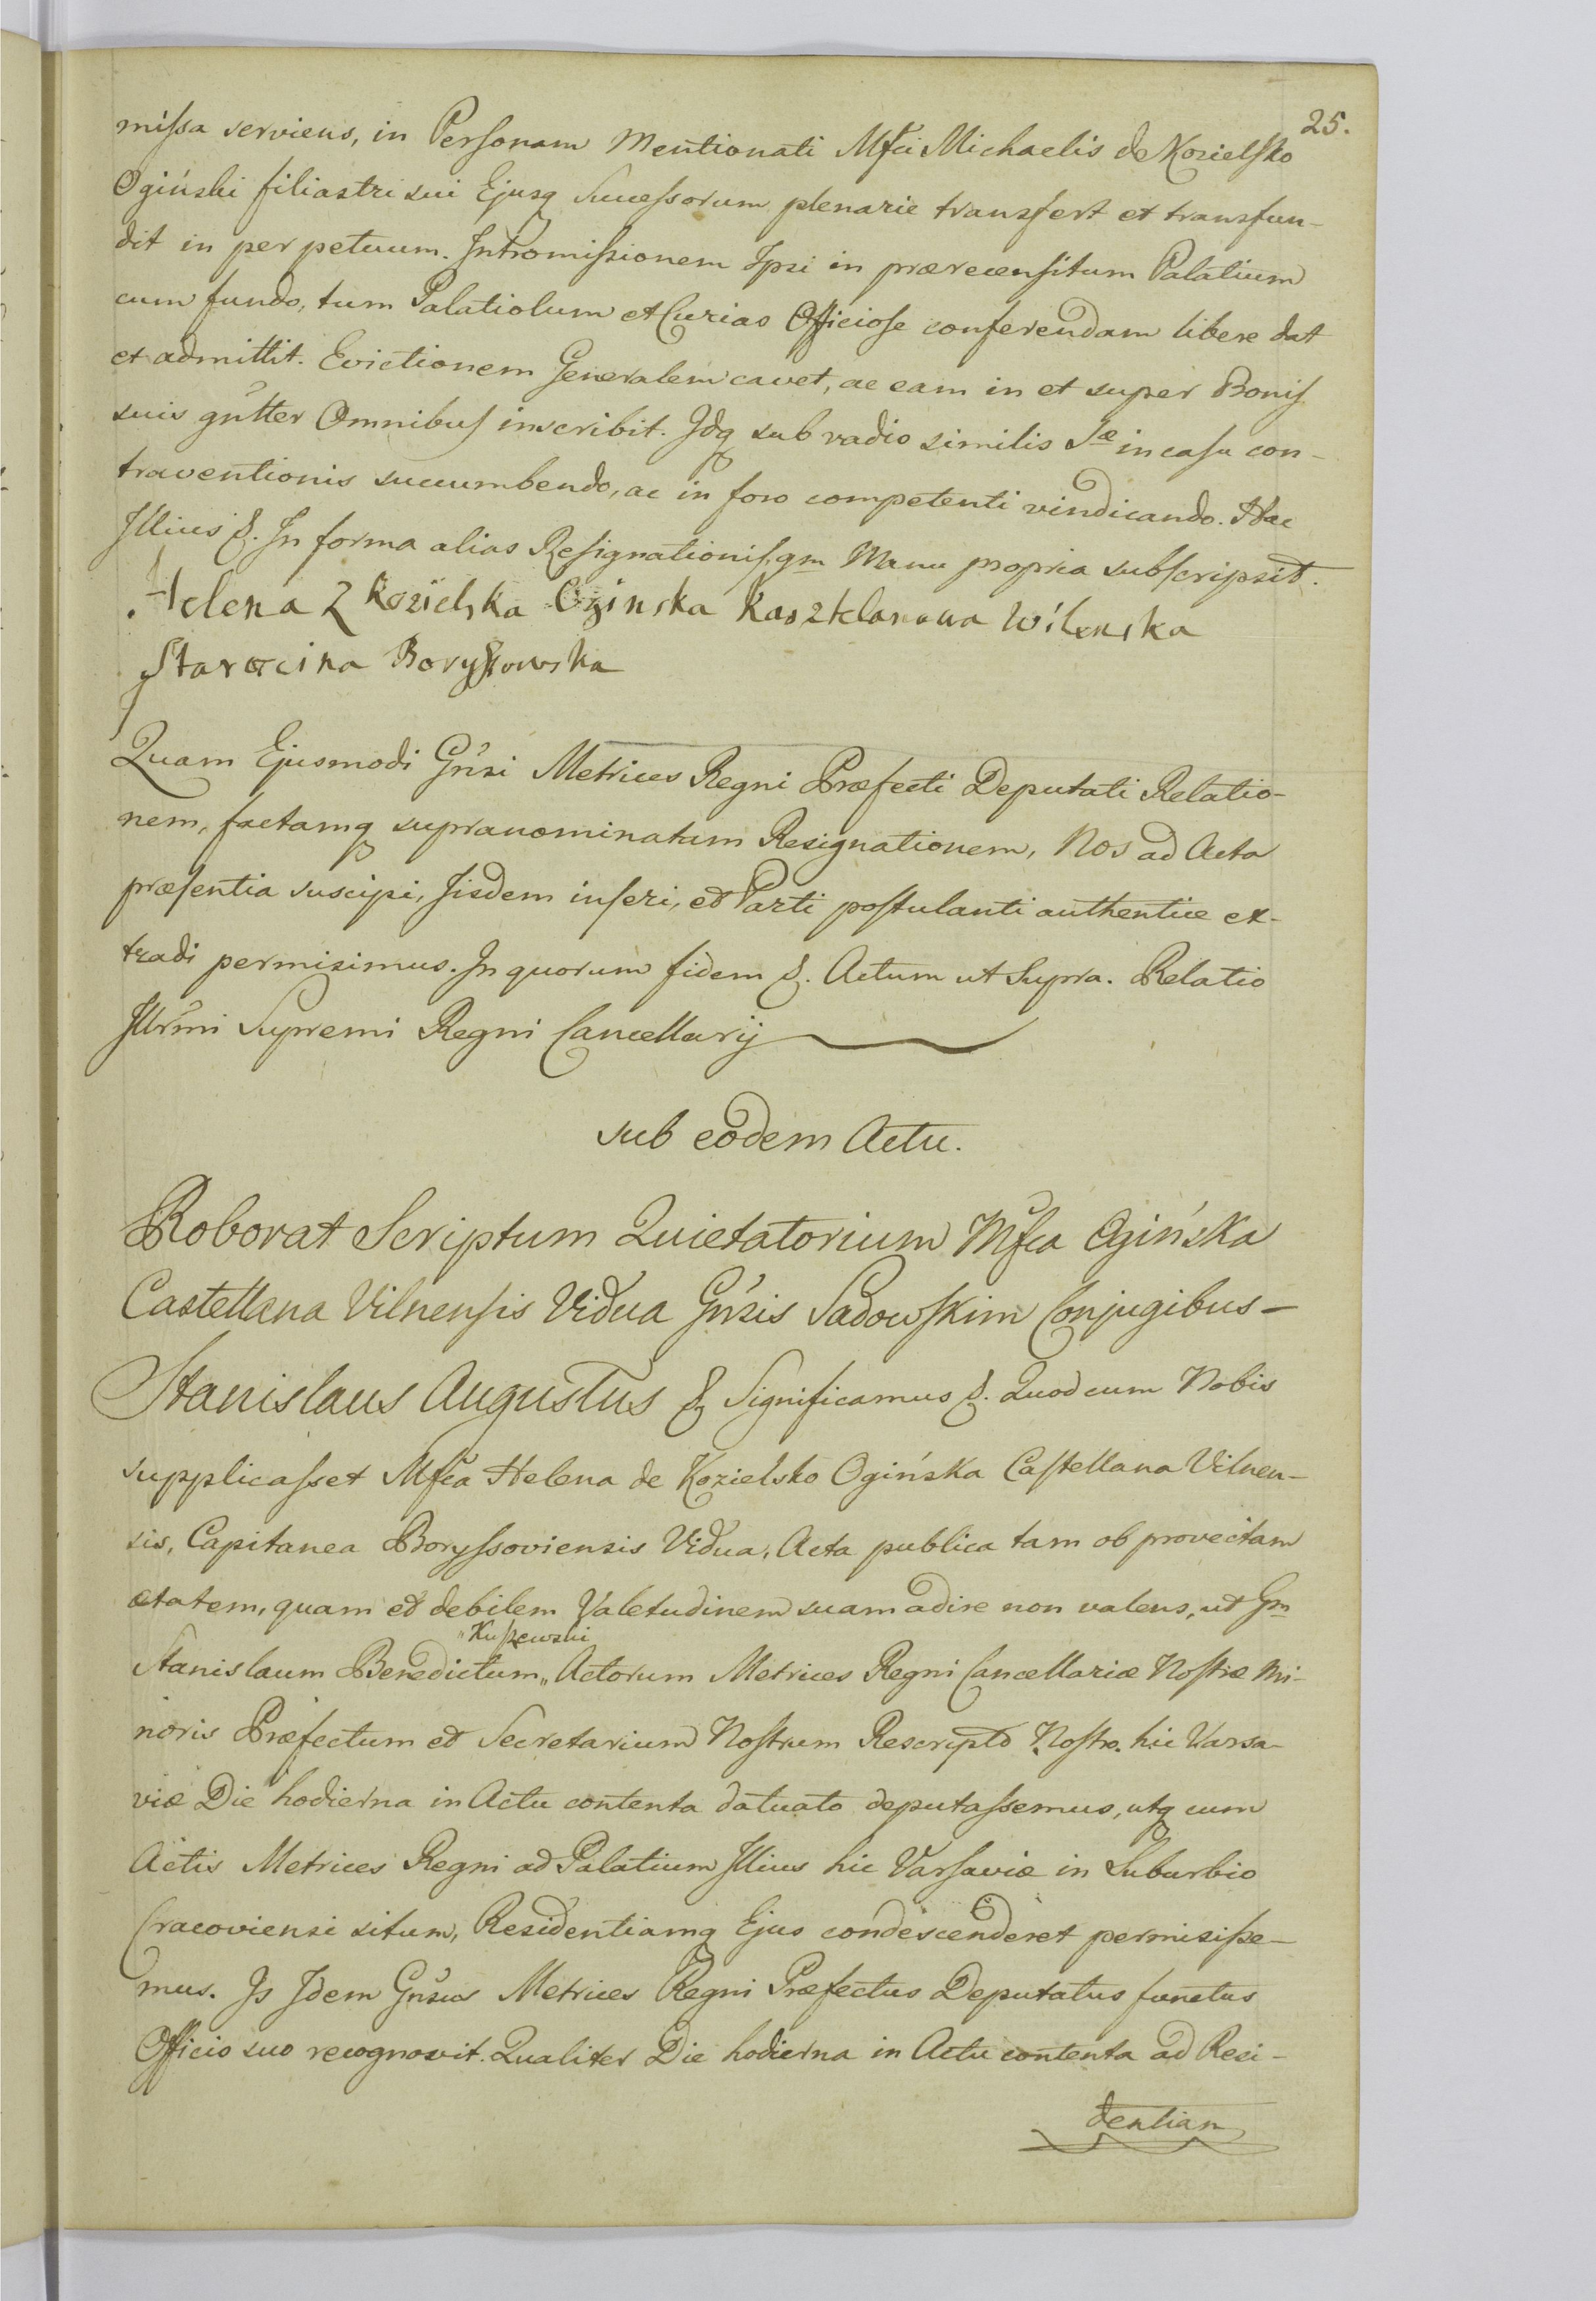 25.
missa serviens, in Personam Mentionati Mfci Michaelis de Kozielsko
Ogiński filiastri sui Ejusq Successorum plenarie transfert et transfun-
dit in perpetuum. Intromissionem Ipsi in præcensitum Palatium
cum fundo, tum Palatiolum et Curias Officiose conferendam libere dat
et admittit. Evictionem Generalem cavet, ac eam in et super Bonis
suis gnlter Omnibus inscribit. Idq sub vadio similis Sæ in casu con-
traventionis succumbendo, ac in foro competenti vindicando. Hac
Illius &. In forma alias Resignationis, qm Manu propria subscripsit.
Helena Z Kozielska Oginska Kasztelanowa Wilenska
Starościna Borysowska
Quam Ejusmodi Gnsi Metrices Regni Præfecti Deputati Relatio-
nem, factamq supranominatam Resignationem, Nos ad Acta
præsentia suscipi, Iisdem inseri, et Parti postulanti authentice ex-
tradi permisimus. In quorum fidem &. Actum ut Supra. Relatio
Illrmi Supremi Regni Cancellarij
sub eodem Actu.
Roborat Scriptum Quietatorium Mfca Ogińska
Castellana Vilnensis Vidua Gnsis Sadowskim Conjugibus-
Stanislaus Augustus & Significamus &. Quod cum Nobis
supplicasset Mfca Helena de Kozielsko Ogińska Castellana Vilnen-
sis, Capitanea Boryssoviensis Vidua, Acta publica tam ob provectam
ætatem, quam et debilem Valetudinem suam adire non valens, ut Gm
"Kuszewski
Stanislaum Benedictum" Actorum Metrices Regni Cancellariæ Nostræ Mi-
noris Præfectum et Secretarium Nostrum Rescripto Nostro hic Varsa-
viæ Die hodierna in Actu contenta datuato deputassemus, utq cum
Actis Metrices Regni ad Palatium Illius hic Varsaviæ in Suburbio
Cracoviensi situm, Residentiamq Ejus condescenderet permisisse-
mus. Is Idem Gnsus Metrices Regni Præfectus Deputatus functus
Officio suo recognovit. Qualiter Die hodierna in Actu contenta ad Resi-
dentiam